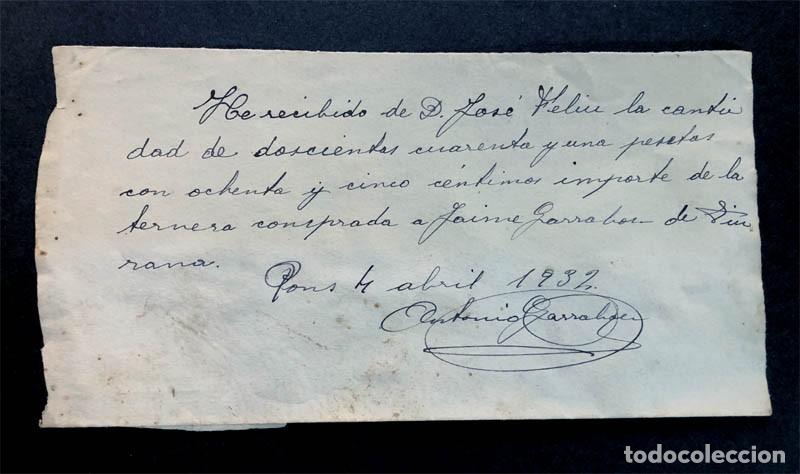 He recibido de D. José Feliu la canti
dad de doscientas cuarenta y una pesetas
con ochenta y cinco céntimos importe de la
ternera comprada a Jaime Garrabou de Viu
rana.
Pons 4 abril 1932.
Antonio Garrabou
todocoleccion